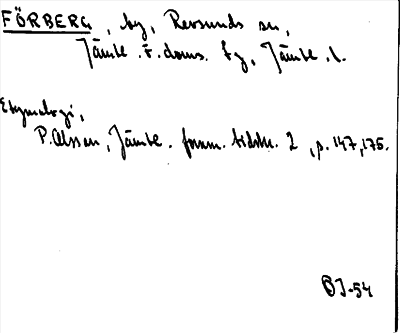 FÖRBERG, by, Revsunds sn,
Jämtl. ö. doms. fg, Jämtl. l.
Etymologi,
P. Olsson, Jämtl. fornm. tidskr. 2, p. 147, 175.
BJ-54